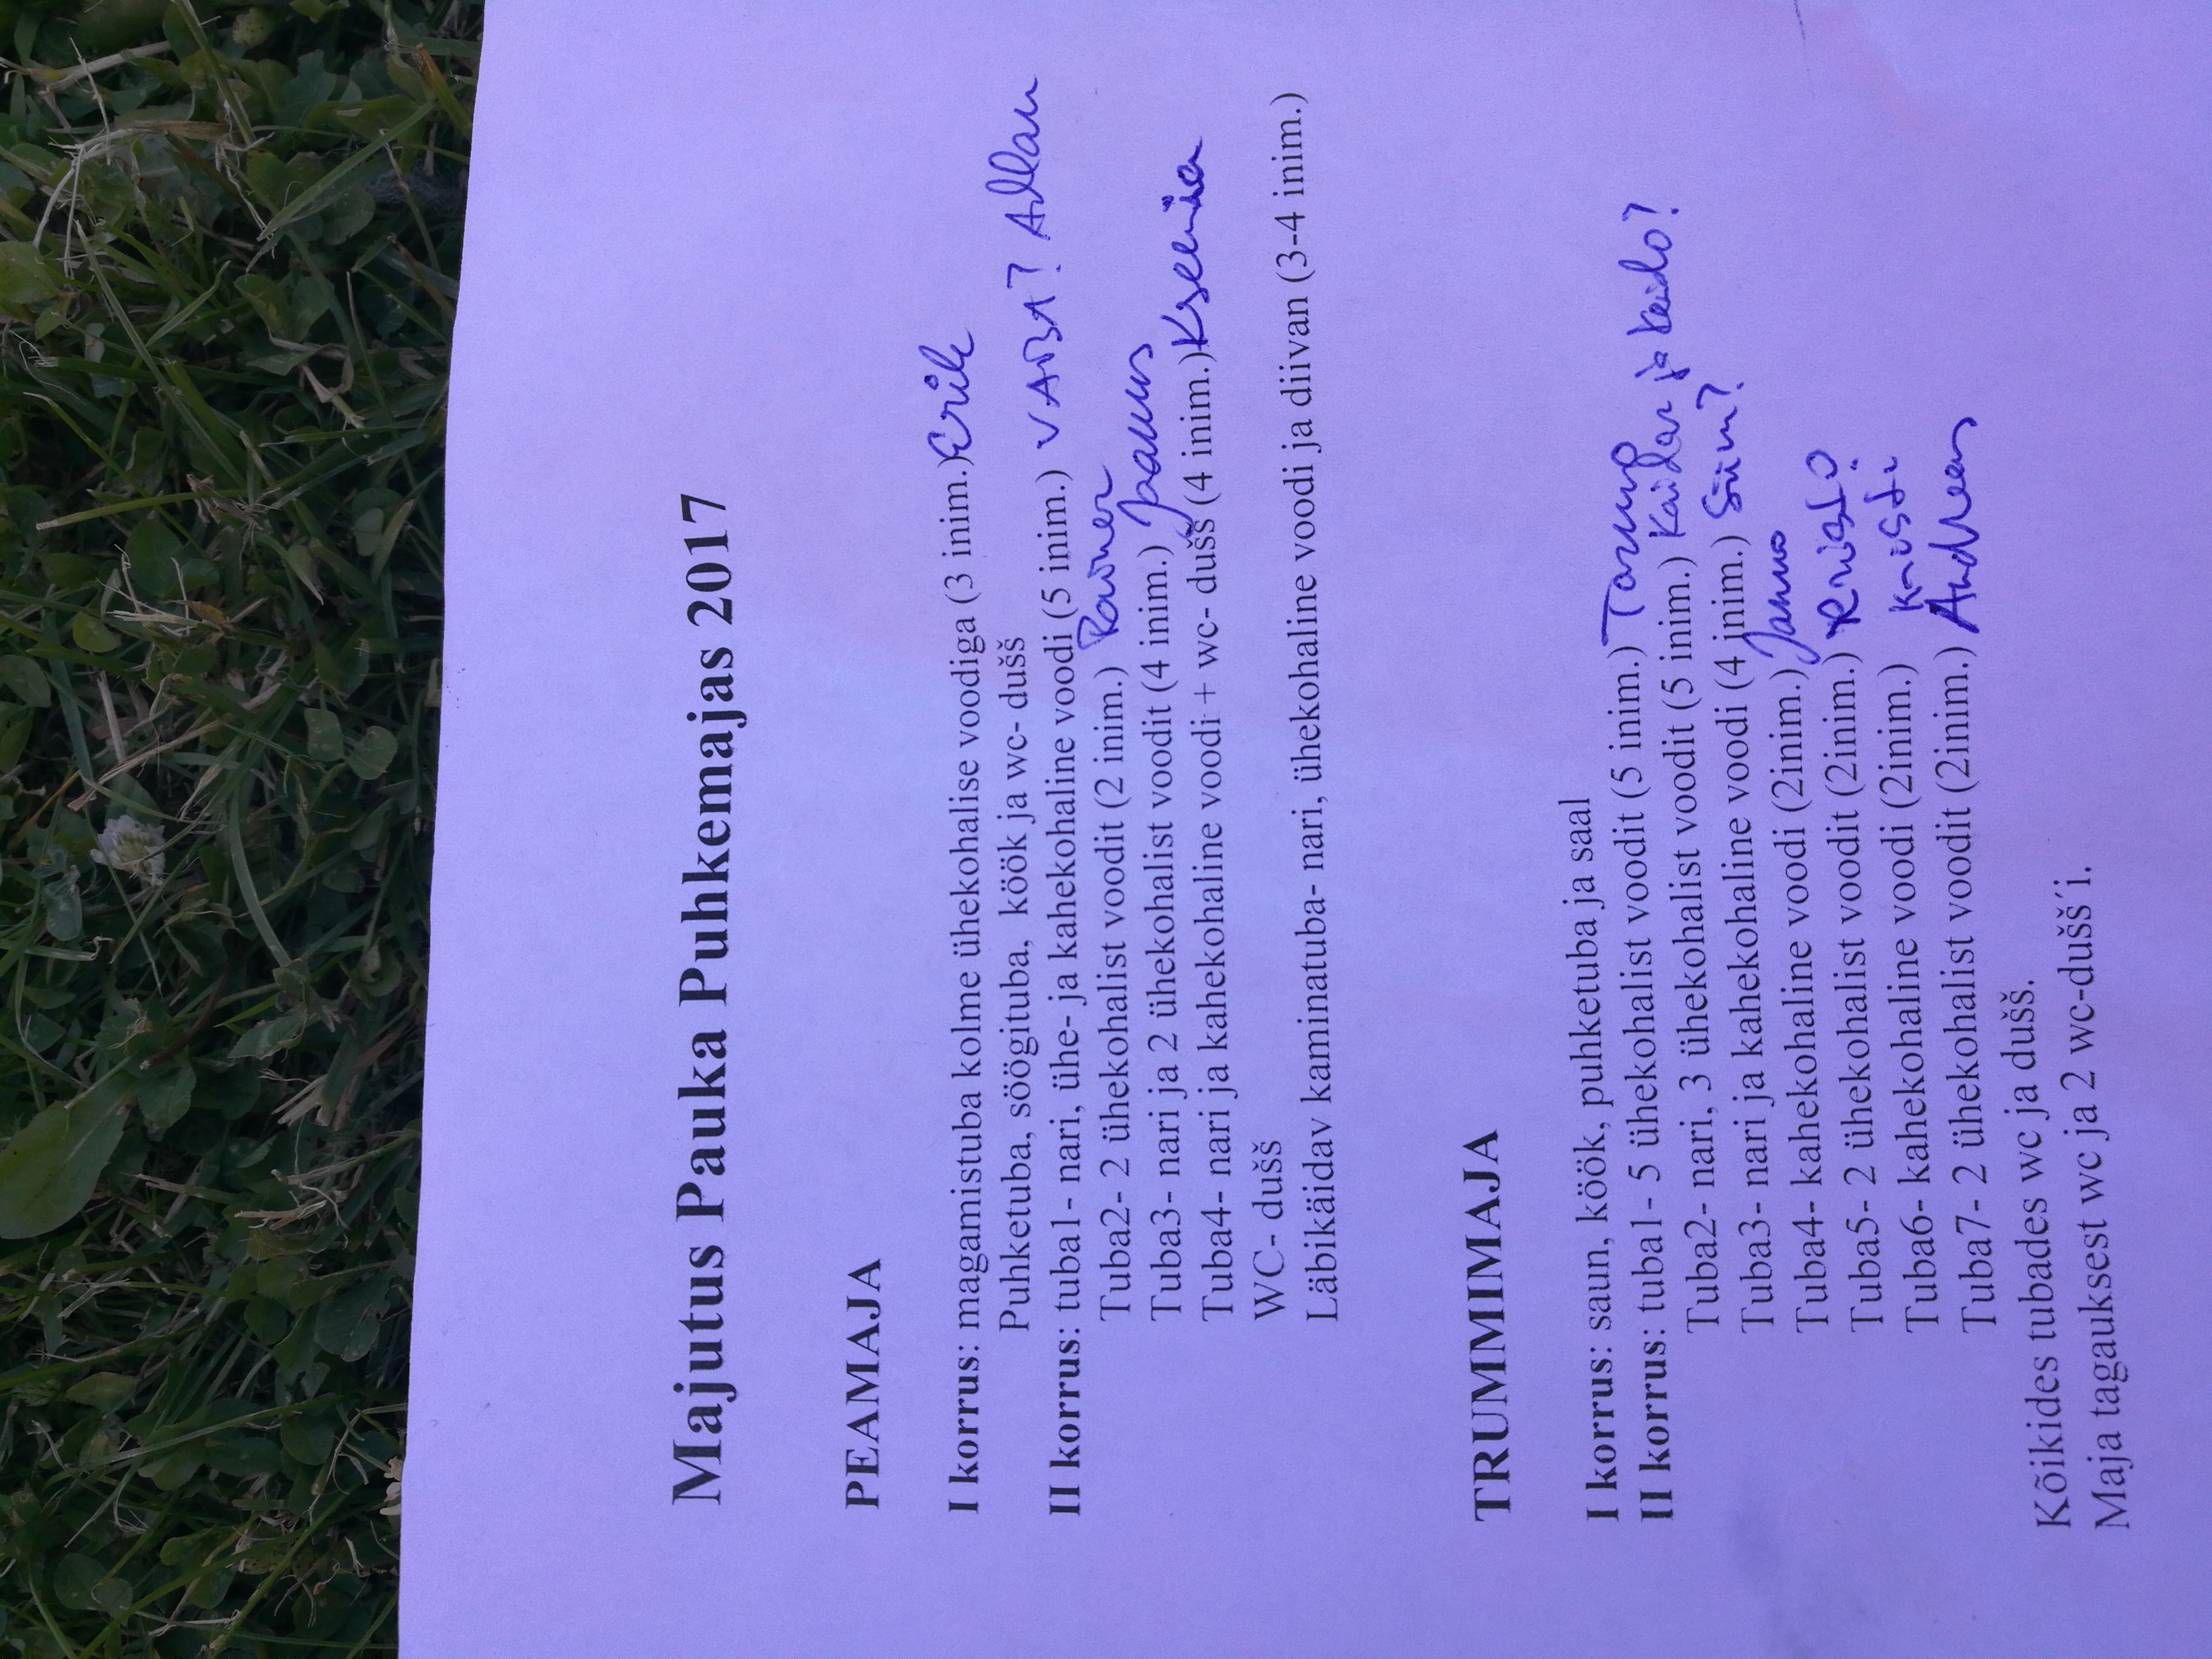 Majutus Pauka Puhkemajas 2017
PEAMAJA
I korrus: magamistuba kolme ühekohalise voodiga (3 inim.) Erik
Puhketuba, söögituba, köök ja wc- dušš
II korrus: tuba1- nari, ühe- ja kahekohaline voodi (5 inim.) VABA? Allan
Tuba2- 2 ühekohalist voodit (2 inim.) Rainer
Tuba3- nari ja 2 ühekohalist voodit (4 inim.) Jaanus
Tuba4- nari ja kahekohaline voodi + wc- dušš (4 inim.) Kseenia
WC- dušš
Läbikäidav kaminatuba- nari, ühekohaline voodi ja diivan (3-4 inim.)
TRUMMIMAJA
I korrus: saun, köök, puhketuba ja saal
II korrus: tuba1- 5 ühekohalist voodit (5 inim.) Tarmo
Tuba2- nari, 3 ühekohalist voodit (5 inim.) Kaidar ja Keido?
Tuba3- nari ja kahekohaline voodi (4 inim.) Siim?
Tuba4- kahekohaline voodi (2inim.) Janno
Tuba5- 2 ühekohalist voodit (2inim.) Kristo?
Tuba6- kahekohaline voodi (2inim.) Kristi
Tuba7- 2 ühekohalist voodit (2inim.) Andreas
Kõikides tubades wc ja dušš.
Maja tagauksest wc ja 2 wc-dušš´i.